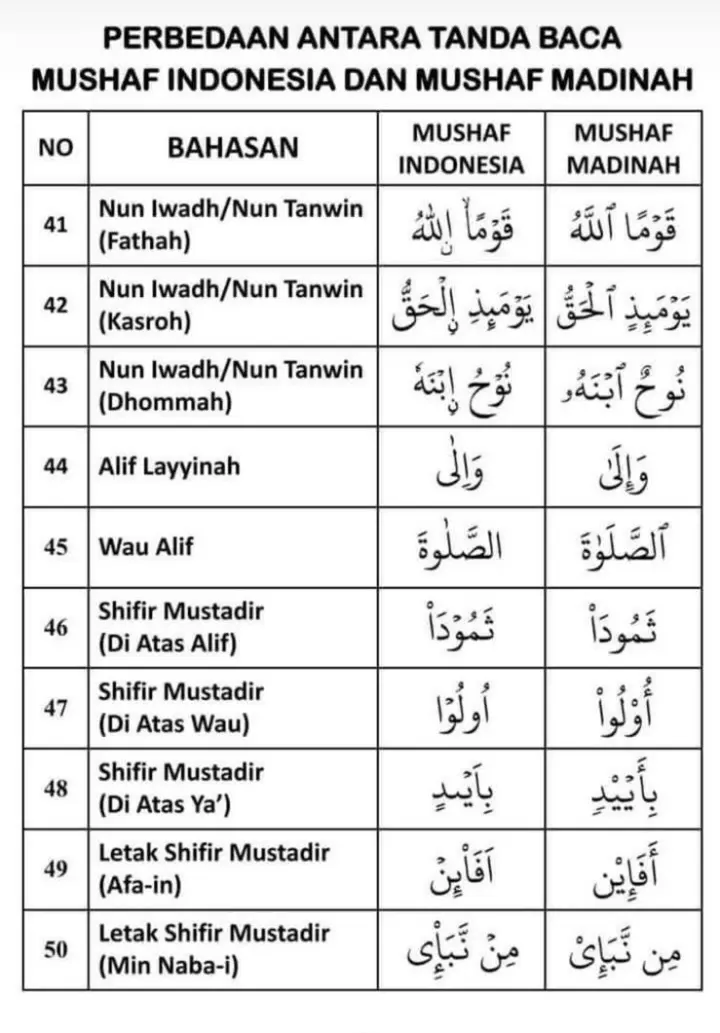 PERBEDAAN ANTARA TANDA BACA
MUSHAF INDONESIA DAN MUSHAF MADINAH
NO BAHASAN MUSHAF INDONESIA MUSHAF MADINAH
41 Nun Iwadh/Nun Tanwin (Fathah) قَوْمًاۙ اۨللّٰهُ قَوْمًا ٱللَّهُ
42 Nun Iwadh/Nun Tanwin (Kasroh) يَوْمَىِٕذِ ۨالْحَقُّ يَوْمَئِذٍ ٱلْحَقُّ
43 Nun Iwadh/Nun Tanwin (Dhommah) نُوْحُ ۨابْنَهٗ نُوحٌ ٱبْنَهُۥ
44 Alif Layyinah وَاِلٰى وَإِلَىٰ
45 Wau Alif الصَّلٰوةَ ٱلصَّلَوٰةَ
46 Shifir Mustadir (Di Atas Alif) ثَمُوْدَا۟ ثَمُودَا۟
47 Shifir Mustadir (Di Atas Wau) اُولُوْا أُو۟لُوا۟
48 Shifir Mustadir (Di Atas Ya’) بِاَيْىدٍ بِأَيْي۟دٍ
49 Letak Shifir Mustadir (Afa-in) اَفَا۟ىِٕنْ أَفَإِي۟ن
50 Letak Shifir Mustadir (Min Naba-i) مِنْ نَّبَا۟ئِ مِن نَّبَإِى۟